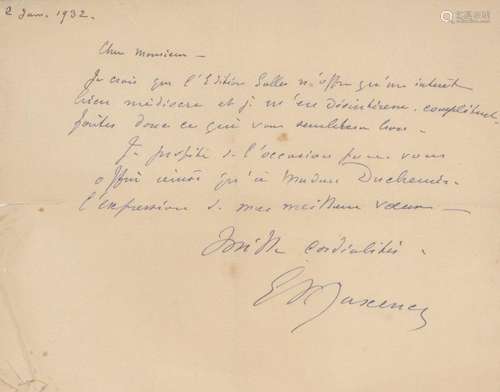 2 Janv. 1932.
Cher Monsieur —
Je crois que l'Edition Salles n'offre qu'un intérêt
bien médiocre et je m'en désintéresse complètement.
Faites donc ce qui vous semblera bon.
Je profite de l'occasion pour vous
offrir ainsi qu'à Madame Duchemin
l'expression de mes meilleurs vœux —
Mille cordialités.